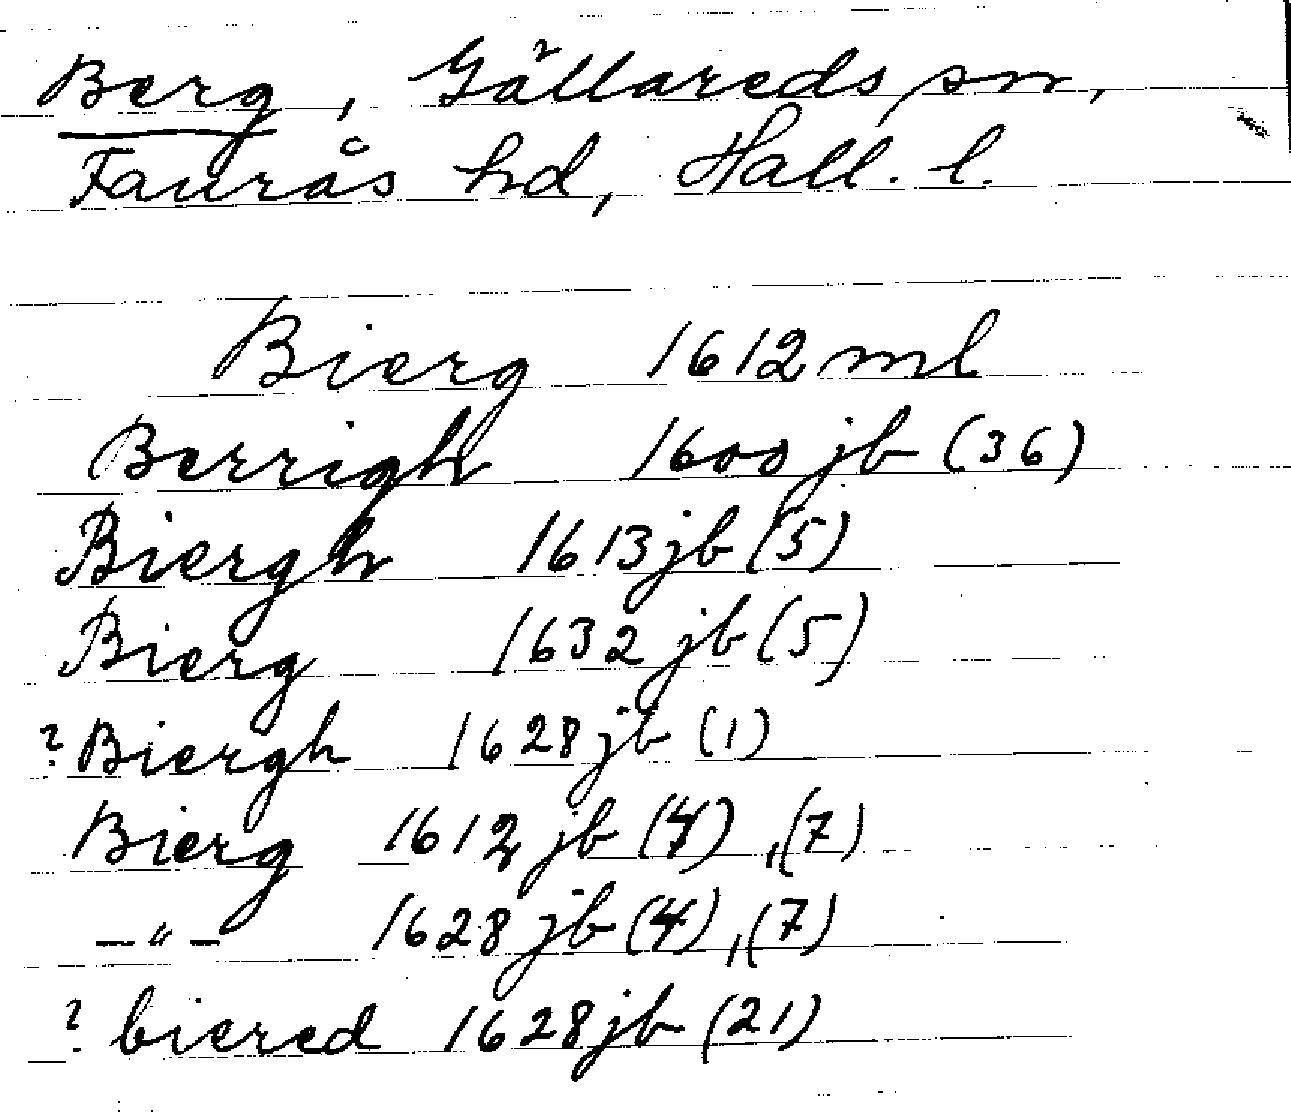 Berg, Gällareds sn,
Faurås hd, Hall. l.
Bierg 1612 ml
Berrigh 1600 jb (36)
Biergh 1613 jb (5)
Bierg 1632 jb (5)
? Biergh 1628 jb (1)
Bierg 1612 jb (4), (7)
–"– 1628 jb (4), (7)
? biered 1628 jb (21)